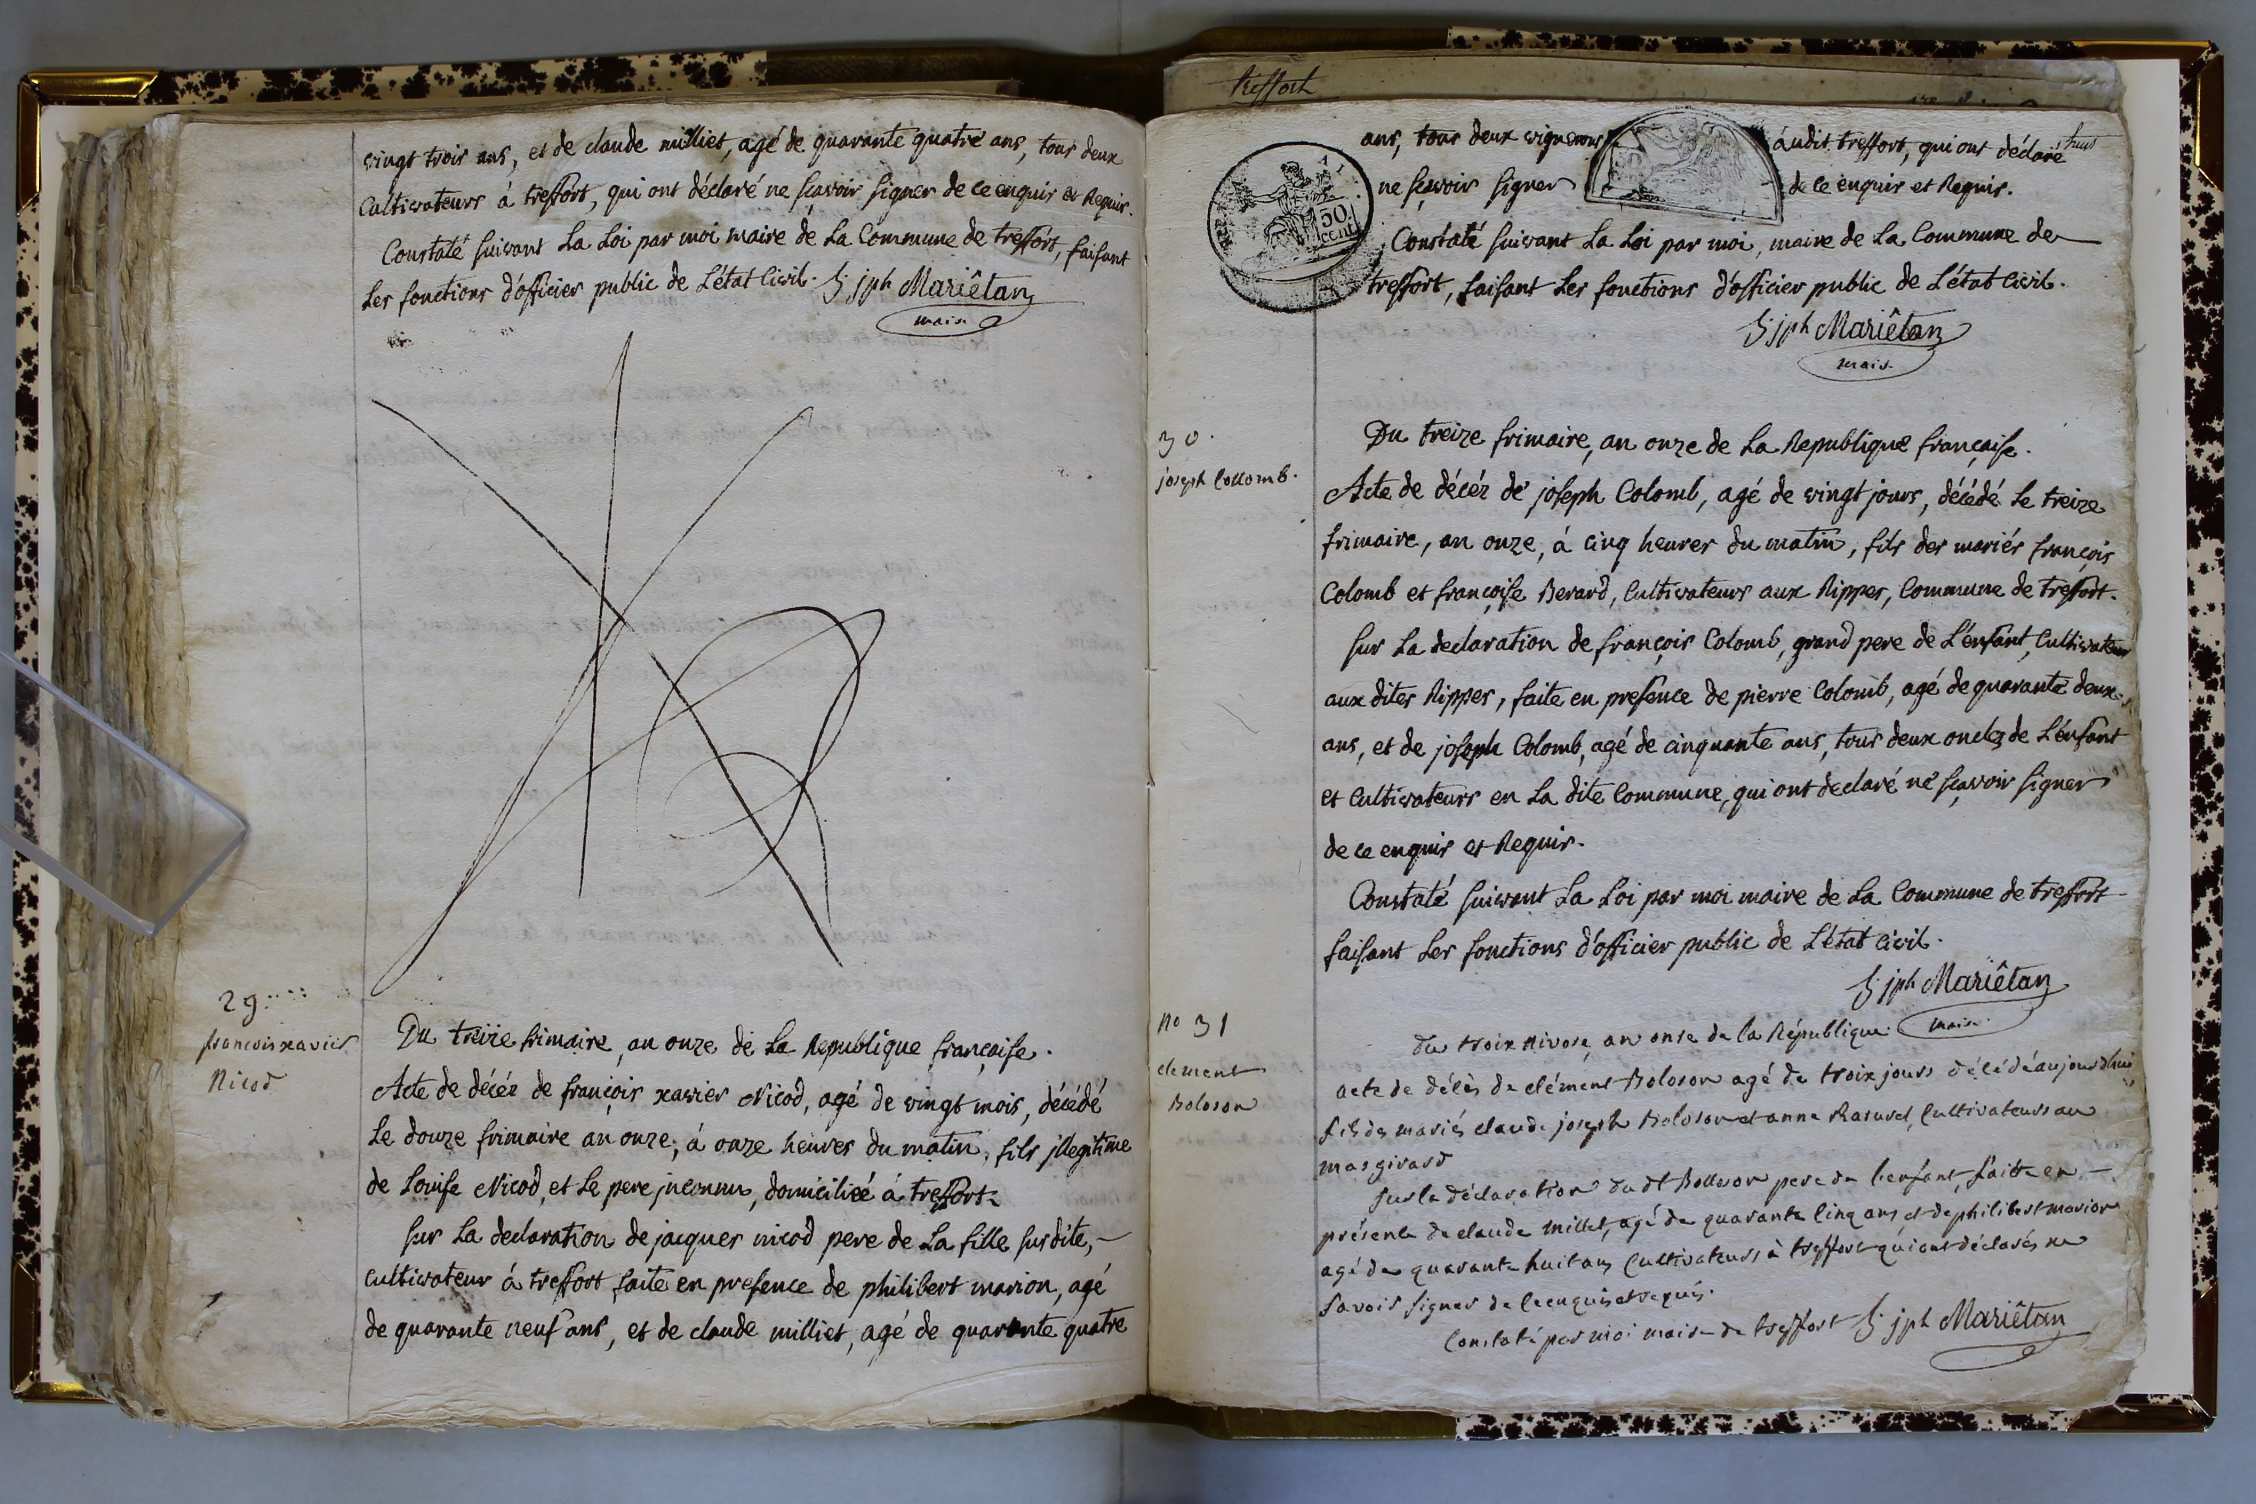 vingt trois ans, et de claude milliet, agé de quarante quatre ans, tous deux
Cultivateurs à treffort, qui ont déclaré ne sçavoir signer de ce enquis et Requis.
Constaté suivant La Loi par moi maire de La Commune de treffort, faisant
Les fonctions d'officier public de L'état Civil. jph Mariêtan
maire
29.
francois xavier
Nicod
Du treize frimaire, an onze de La Republique françaife.
Acte de décéz de françois xavier Nicod, agé de vingt mois, décédé
Le douze frimaire an onze, à onze heures du matin, fils jllegitime
de Louise Nicod, et Le pere jnconnu, domiciliée à treffort.
sur La declaration de jacques nicod pere de La fille susdite,
Cultivateur à treffort, faite en presence de philibert marion, agé
de quarante neuf ans, et de claude milliet, agé de quarante quatre
treffort
ans, tous deux vignerons audit treffort, qui ont déclaré
ne sçavoir signer de ce enquis et Requis.
50
cent
Constaté suivant La Loi par moi, maire de La Commune de
treffort, faisant Les fonctions d'officier public de L'état Civil.
jph Mariêtan
maire
30.
joseph Collomb.
Du treize frimaire, an onze de La Republique française.
Acte de décéz de joseph Colomb, agé de vingt jours, décédé Le treize
frimaire, an onze, à cinq heures du matin, fils des mariés françois
Colomb et françoise Berard, Cultivateurs aux Rippes, Commune de treffort.
sur La declaration de françois Colomb, grand pere de L'enfant, Cultivateur
aux dites Rippes, faite en presence de pierre Colomb, agé de quarante deux
ans, et de joseph Colomb, agé de cinquante ans, tous deux oncles de L'enfant
et Cultivateurs en La dite Commune, qui ont declaré ne sçavoir signer
de ce enquis et Requis.
Constaté suivant La Loi par moi maire de La Commune de treffort
faisant Les fonctions d'officier public de L'état Civil.
jph Mariêtan
maire
No 31
clement
Boloson
du troix nivose, an onse de la République
acte de délès de clément Boloson agé de troix jours décédé aujourd'hui
fils des mariés claude joseph Boloson et anne Rasurel, Cultivateurs au
mas girard
sur la déclaration du dt Bolloson pere de l'enfant, faite en
présence de claude millet, agé de quarante cinq ans et de philibert marion
agé de quarante huit ans Cultivateurs à treffort qui ont déclarés ne
savoir signer de ce enquis et requis.
Constaté par moi maire de treffort jph Mariêtan